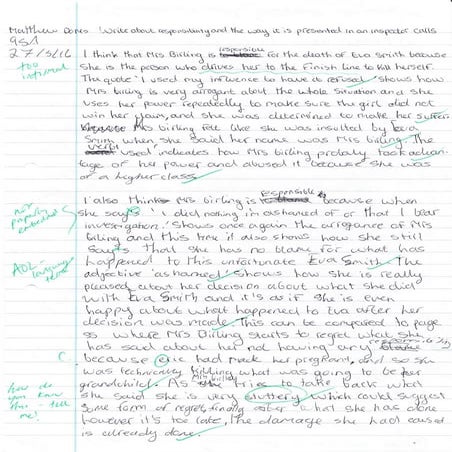 Matthew Write about responsibility and the way it is presented in an inspector calls
9S1
27/5/16 I think that Mrs Birling is responsible for the death of Eva Smith because
too informal she is the person who drives her to the finish line to kill herself.
The quote 'I used my influence to have it refused' shows how
Mrs birling is very arrogant about the whole situation and she
uses her power repeatedly to make sure the girl did not
win her over, and she was determined to make her suffer.
Mrs birling felt like she was insulted by Eva
Smith when she said her name was Mrs birling. The
verb used indicates how Mrs birling probaly took advan-
tage of her power and abused it because she was
of a higher class.
I also think Mrs birling is responsible because when
not properly embedded she says 'I did nothing im ashamed of or that I bear
investigation.' Shows once again the arrogance of Mrs
birling and this time it also shows how she still
says that she has no blame for what has
AO2 - language terms happened to this unfortunate Eva Smith. The
adjective 'ashamed' shows how she is really
pleased about her decision about what she did
with Eva Smith and it's as if she is even
happy about what happened to Eva after her
decision was made. This can be compared to page
where Mrs Birling starts to regret what she
has said about her not having any responsibility
C because eric had made her pregnant, and so she
was technically killing what was going to be her
grandchild. As Mrs birling tries to take back what
how do you know this - tell me! she said she is very stuttery which could suggest
some form of regret, finally after what she has done
however it's too late, the damage she had caused
is already done.